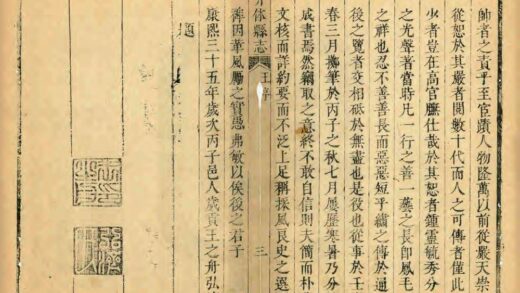 帥者之責乎至官蹟人物隆萬以前從嚴天崇
從恕於其嚴者閱數十代而人之可傳者僅此
少者豈在高官膴仕哉於其恕者鍾靈毓秀分
之光聲者當時凡一行之善一藝之長卽鳳毛
之祥也忍不善善長而惡惡短乎繡之傳於通
後之覽者交相砥於無盡也是役也從事於壬
春三月擲筆於丙子之秋七月屢歷寒暑乃分
成書焉然竊取之意終不敢自信則夫簡而朴
文核而詳約要而不泛上足稱採風良史之選
休縣志 王序 三
善因革風勵之實愚弗敏以俟後之君子
康熙三十五年歲次丙子邑人歲貢王之舟弘
題